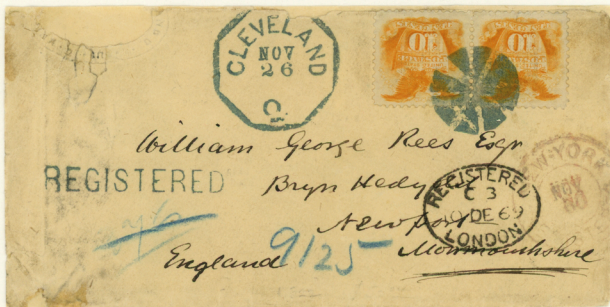 CLEVELAND
NOV
26
O.
10 10
William George Rees Esqr
REGISTERED
Bryn Hedy
REGISTERED
C 3
10 DE 69
LONDON
NEW-YORK
NOV
30
Newport
Monmouthshire
England
9125